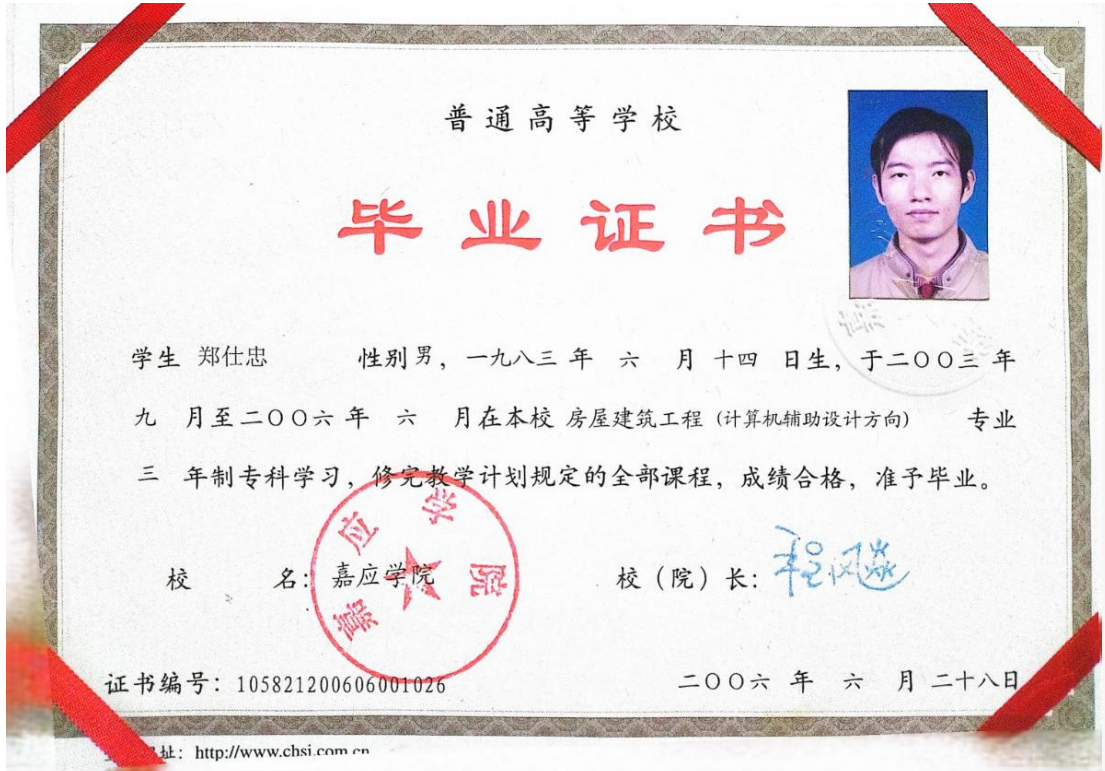 普通高等学校
毕业证书
学生 郑仕忠 性别男，一九八三 年 六 月 十四 日生，于二〇〇三 年
九 月至二〇〇六 年 六 月在本校 房屋建筑工程（计算机辅助设计方向） 专业
三 年制专科学习，修完教学计划规定的全部课程，成绩合格，准予毕业。
校 名：嘉应学院 校（院）长：程飚
嘉应学院
证书编号：105821200606001026 二〇〇六 年 六 月 二十八日
址：http://www.chsi.com.cn